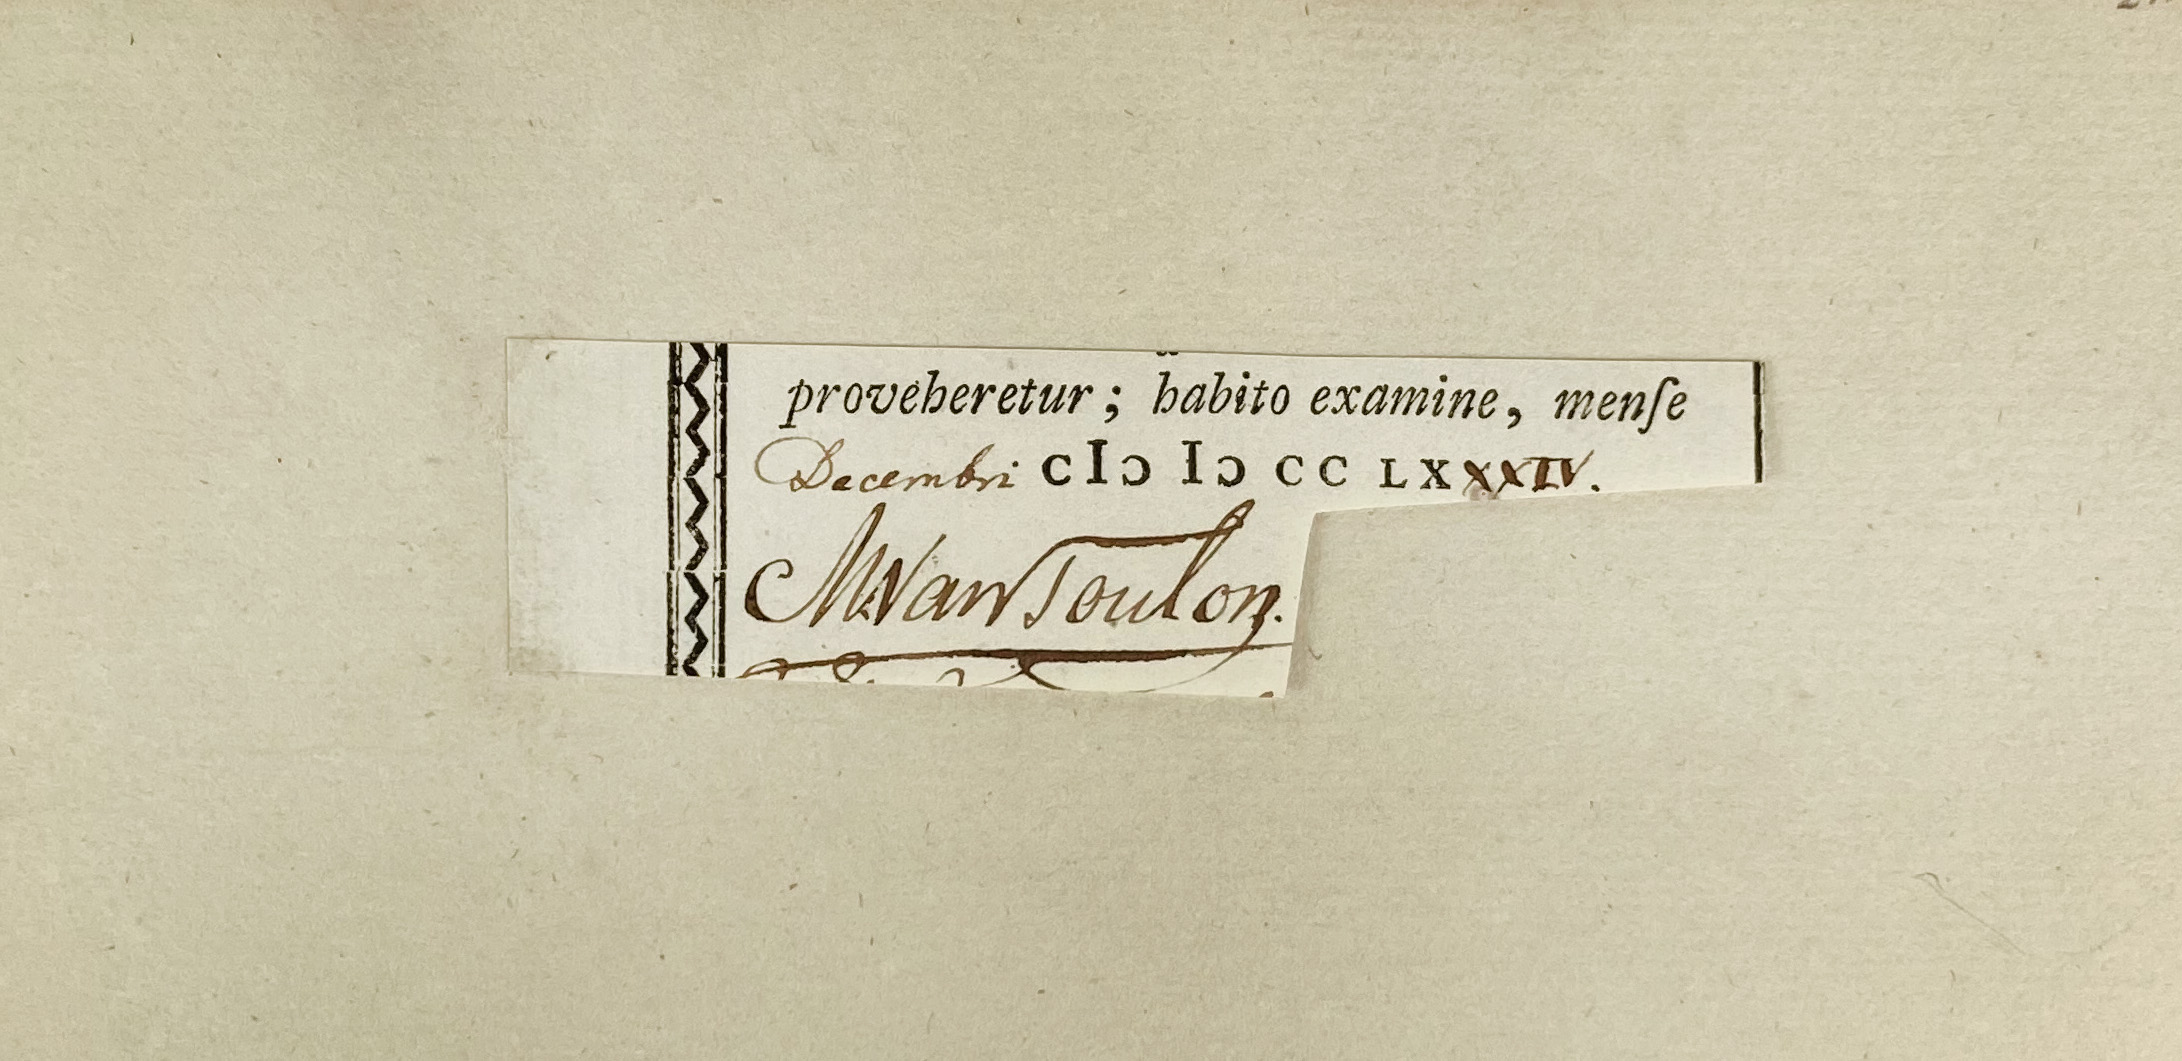 proveheretur; habito examine, menſe
Decembri CIↃ IↃ CC LXXXIV.
M Van Toulon.